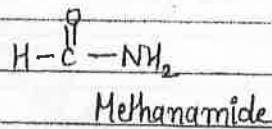 O
H-C-NH₂
Methanamide